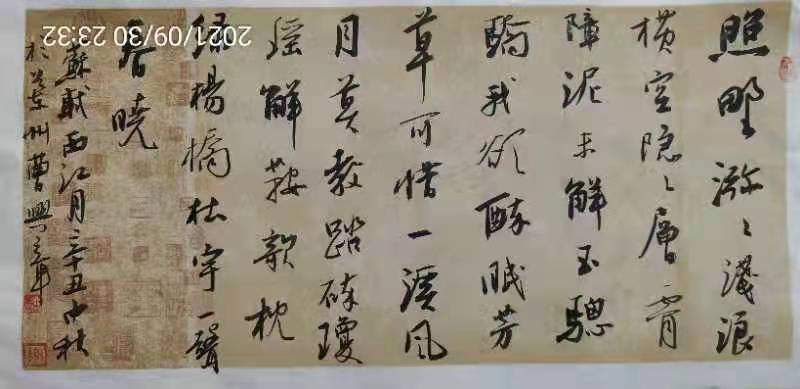 照野瀰々淺浪
橫空隱々層霄
障泥未解玉驄
驕我欲醉眠芳
草可惜一溪風
月莫教踏碎瓊
瑤解鞍欹枕
綠楊橋杜宇一聲
春曉
蘇軾西江月辛丑中秋
於州曹興
2021/09/30 23:32